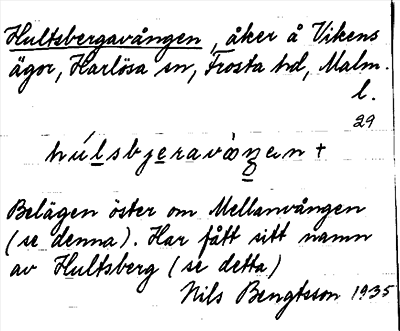 Hultsbergavången, åker å Vikens
ägor, Harlösa sn, Frosta hd, Malm.
l.
29
Belägen öster om Mellanvången
(se denna). Har fått sitt namn
av Hultsberg (se detta)
Nils Bengtsson 1935